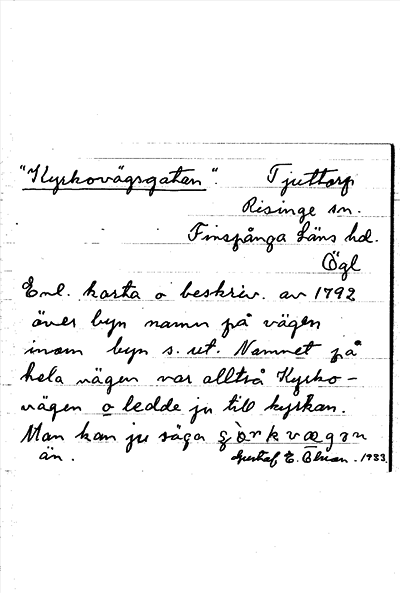 "Kyrkovägsgatan".
Tjuttorp
Risinge sn.
Finspånga Läns hd.
Ögl
Enl. karta o beskriv. av 1792
över byn namn på vägen
inom byn s. ut. Namnet på
hela vägen var alltså Kyrko-
vägen o ledde ju till kyrkan.
Man kan ju säga
än.
Gustaf E. 1933.